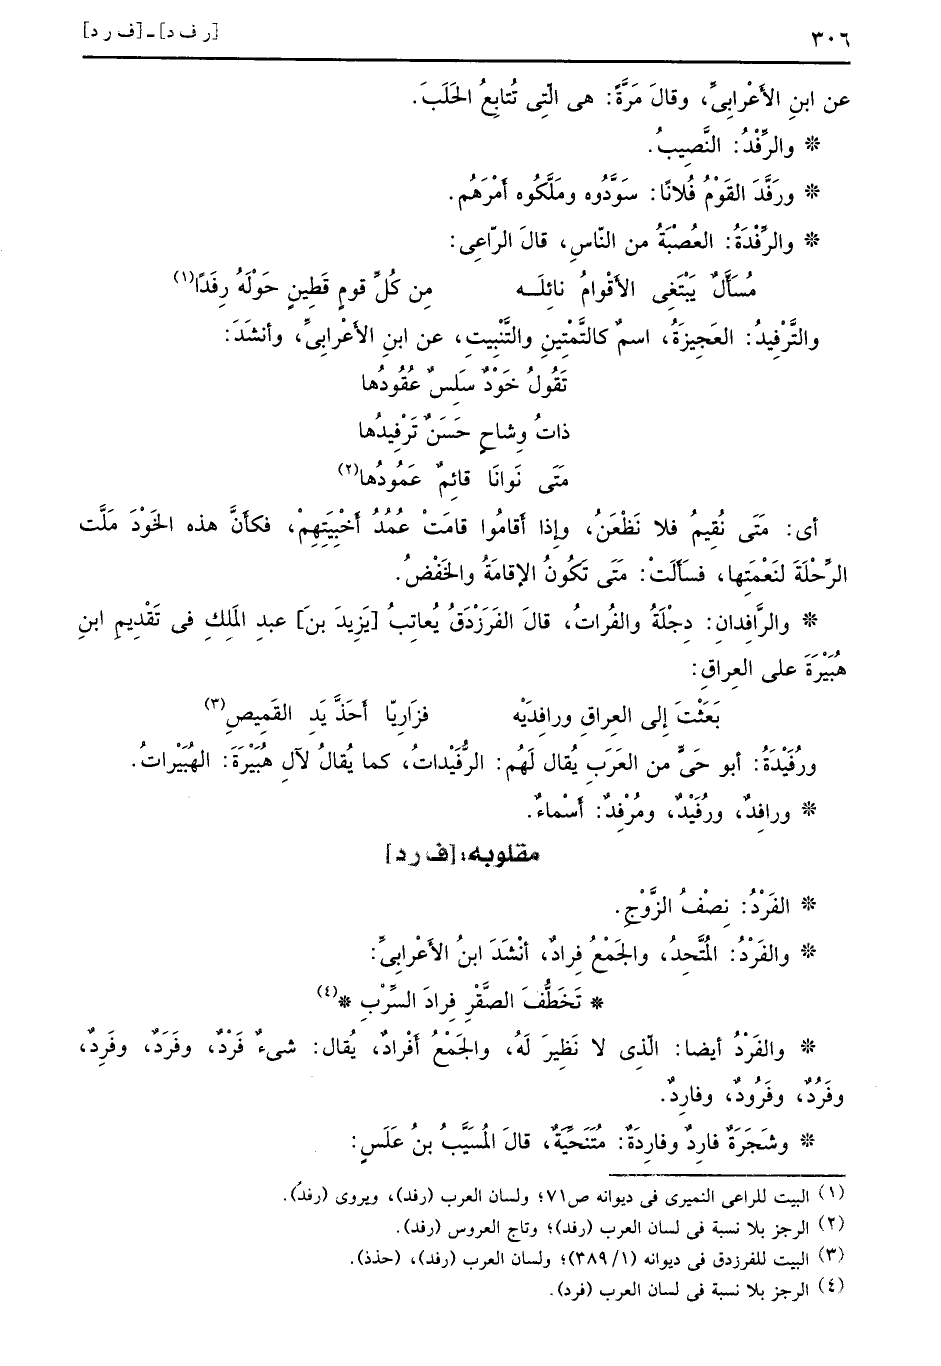 ٣٠٦
[ر ف د] ـ [ف ر د]
عن ابنِ الأَعْرابىِّ، وقالَ مَرَّةً: هى الّتِى تُتابِعُ الحَلَبَ.
* والرِّفْدُ: النَّصِيبُ.
* ورَفَّدَ القَوْمُ فُلانًا: سَوَّدُوه ومَلَّكُوه أَمْرَهُم.
* والرِّفْدَةُ: العُصْبَةُ من النّاسِ، قالَ الرّاعِى:
مُسَأَّلٌ يَبْتَغِى الأَقْوامُ نائِلَـه مِن كُلِّ قومٍ قَطِينٍ حَوْلَهُ رِفَدَا(١)
والتَّرْفِيدُ: العَجِيزَةُ، اسمٌ كالتَّمْتِينِ والتَّنْبِيتِ، عن ابنِ الأَعْرابىِّ، وأنشَدَ:
تَقُولُ خَوْدٌ سَلِسٌ عقُودُها
ذاتُ وِشاحٍ حَسَنٌ تَرْفِيدُها
مَتَى نَوانَا قائِمٌ عَمُودُها(٢)
أى: مَتَى نُقِيمُ فلا نَظْعَنُ، وإذا أَقامُوا قامَتْ عُمُدُ أَخْبِيَتِهِمْ، فكأَنَّ هذه الخَوْدَ مَلَّت
الرِّحْلَةَ لنَعْمَتِها، فسَأَلَتْ: مَتى تَكونُ الإقامَةُ والخَفْضُ.
* والرَّافِدان: دِجْلَةُ والفُراتُ، قالَ الفَرَزْدَقُ يُعاتِبُ [يَزِيدَ بنَ] عبدِ المَلِكِ فى تَقْدِيمِ ابنِ
هُبَيْرَةَ على العِراقِ:
بَعَثْتَ إلى العِراقِ ورافِدَيْه فزَارِيّا أَحَذَّ يَدِ القَمِيصِ(٣)
ورُفَيْدَةُ: أبو حَىٍّ من العَرَبِ يُقال لَهُم: الرُّفَيْداتُ، كما يُقالُ لآلِ هُبَيْرَةَ: الهُبَيْراتُ.
* ورافِدٌ، ورُفَيْدٌ، ومُرْفِدٌ: أَسْماءٌ.
مقلوبه: [ف ر د]
* الفَرْدُ: نِصْفُ الزَّوْجِ.
* والفَرْدُ: المُتَّحِدُ، والجَمْعُ فِرادٌ، أنْشَدَ ابنُ الأَعْرابىِّ:
* تَخَطُّفَ الصَّقْرِ فِرادَ السِّرْبِ *(٤)
* والفَرْدُ أيضا: الّذِى لا نَظِيرَ لَهُ، والجَمْعُ أَفْرادٌ، يُقال: شىءٌ فَرْدٌ، وفَرَدٌ، وفَرِدٌ،
وفَرُدٌ، وفَرُودٌ، وفارِدٌ.
* وشَجَرَةٌ فارِدٌ وفارِدَةٌ: مُتَنَحِّيَةٌ، قالَ المُسَيَّبُ بنُ عَلَسٍ:
(١) البيت للراعى النميرى فى ديوانه ص٧١؛ ولسان العرب (رفد)، ويروى (رفدُ).
(٢) الرجز بلا نسبة فى لسان العرب (رفد)؛ وتاج العروس (رفد).
(٣) البيت للفرزدق فى ديوانه (٣٨٩/١)؛ ولسان العرب (رفد)، (حذذ).
(٤) الرجز بلا نسبة فى لسان العرب (فرد).